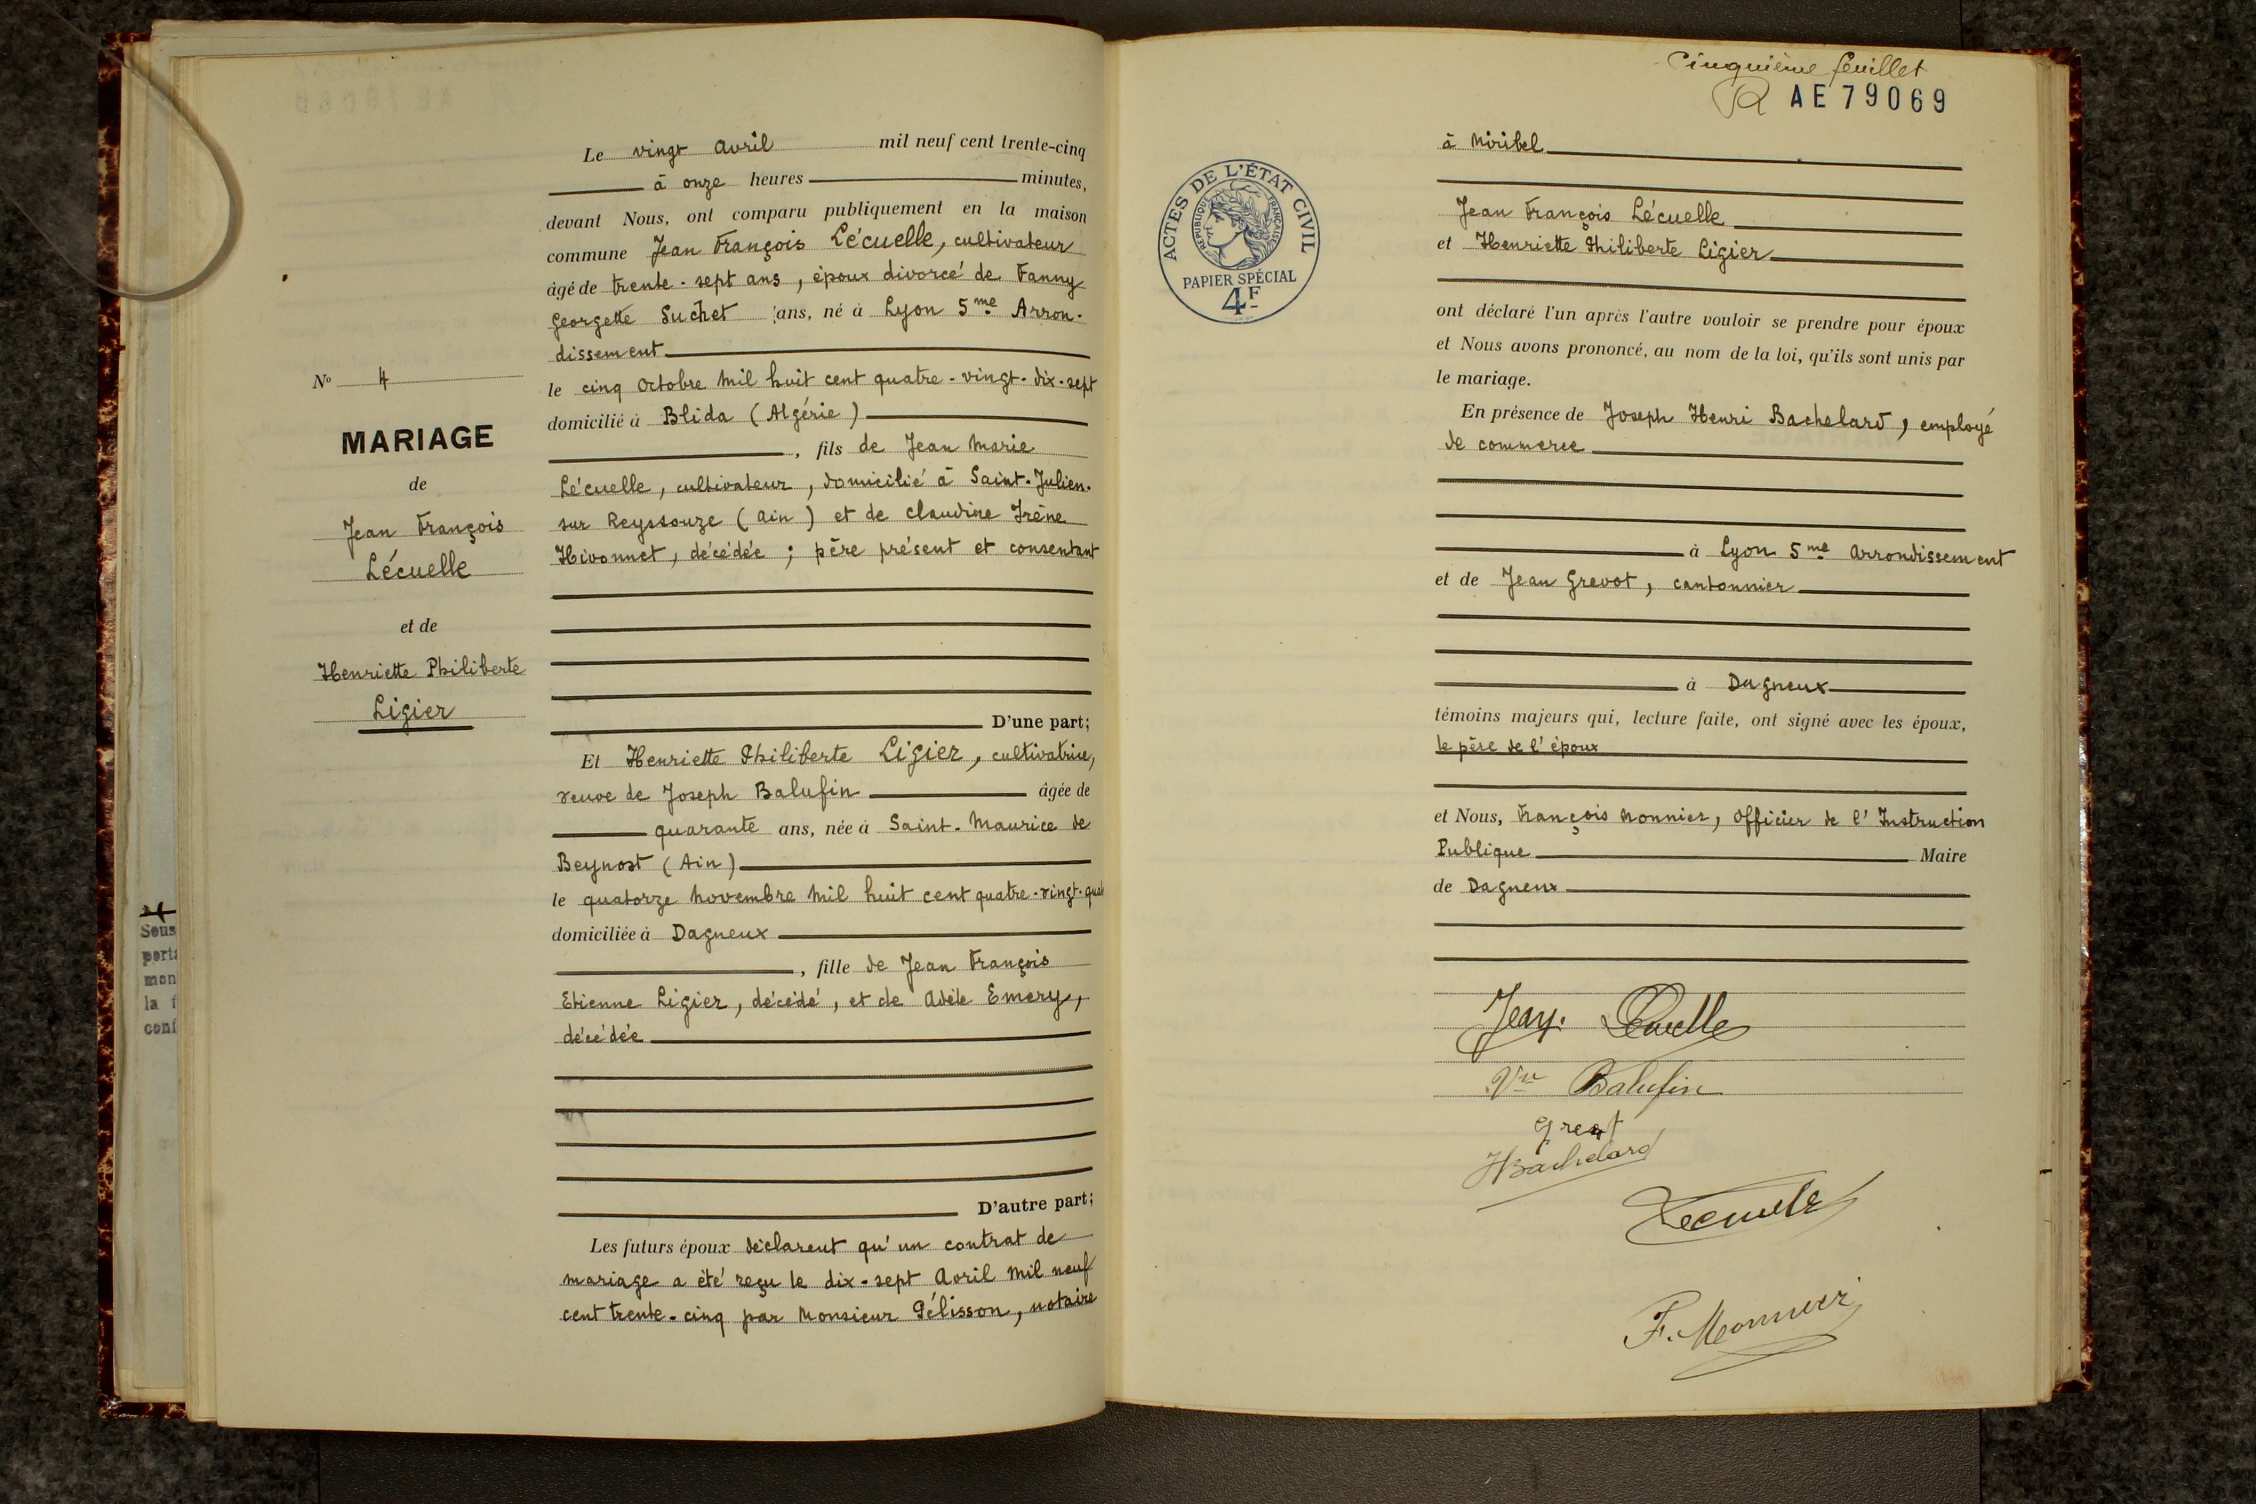 Sous
mon
la
N° 4
MARIAGE
de
Jean François
Lécuelle
et de
Henriette Philiberte
Ligier
Le vingt Avril mil neuf cent trente-cinq
à onze heures minutes,
devant Nous, ont comparu publiquement en la maison
commune Jean François Lécuelle, cultivateur
âgé de trente-sept ans, époux divorcé de Fanny
Georgette Suchet ans, né à Lyon 5me Arron-
dissement
le cinq Octobre mil huit cent quatre-vingt-dix-sept
domicilié à Blida (Algérie)
, fils de Jean Marie
Lécuelle, cultivateur, domicilié à Saint-Julien-
sur Reyssouze (Ain) et de Claudine Irène
Hivonnet, décédée ; père présent et consentant
D'une part;
Et Henriette Philiberte Ligier, cultivatrice,
veuve de Joseph Balufin âgée de
quarante ans, née à Saint-Maurice de
Beynost (Ain)
le quatorze novembre mil huit cent quatre-vingt-qua
domiciliée à Dagneux
, fille de Jean François
Etienne Ligier, décédé, et de Adèle Emery,
décédée
D'autre part;
Les futurs époux déclarent qu'un contrat de
mariage a été reçu le dix-sept Avril mil neuf
cent trente-cinq par Monsieur Gélisson, notaire
Cinquième feuillet
AE 79069
ACTES DE L'ÉTAT CIVIL
RÉPUBLIQUE FRANÇAISE
PAPIER SPÉCIAL
4F
à Miribel
Jean François Lécuelle
et Henriette Philiberte Ligier
ont déclaré l'un après l'autre vouloir se prendre pour époux
et Nous avons prononcé, au nom de la loi, qu'ils sont unis par
le mariage.
En présence de Joseph Henri Bachelard, employé
de commerce
à Lyon 5me Arrondissement
et de Jean Grevot, cantonnier
à Dagneux
témoins majeurs qui, lecture faite, ont signé avec les époux,
le père de l'époux
et Nous, François Monnier, Officier de l'Instruction
Publique Maire
de Dagneux
Jean. Lécuelle
Vve Balufin
HBachelard
Lecuelle
F. Monnier